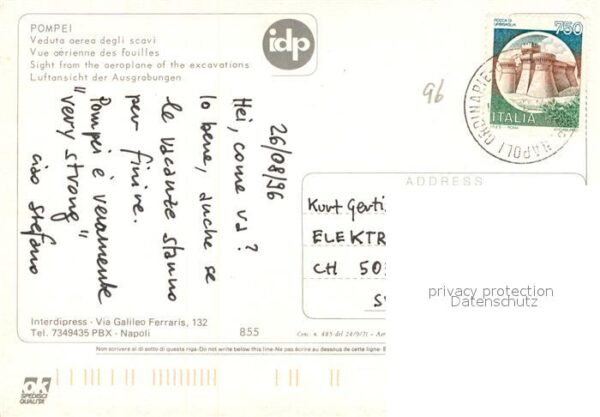 POMPEI
Veduta aerea degli scavi
Vue aérienne des fouilles
Sight from the aeroplane of the excavations
Luftansicht der Ausgrabungen
idp
ROCCA DI URBISAGLIA
750
ITALIA
NAPOLI ORDINARIE
96
26/08/96
Hei, come va?
Io bene, anche se
le vacanze stanno
per finire.
Pompei è veramente
"very strong"
ciao stefano
ADDRESS
Kurt Gerti
ELEKTR
CH 503
privacy protection
Datenschutz
Interdipress - Via Galileo Ferraris, 132
Tel. 7349435 PBX - Napoli
855
Conc. n. 485 del 24/9/71 - Aut
Non scrivere al di sotto di questa riga-Do not write below this line-Ne pas écrire au dessous de cette ligne-
ok
SPEDISCI
QUALITÀ